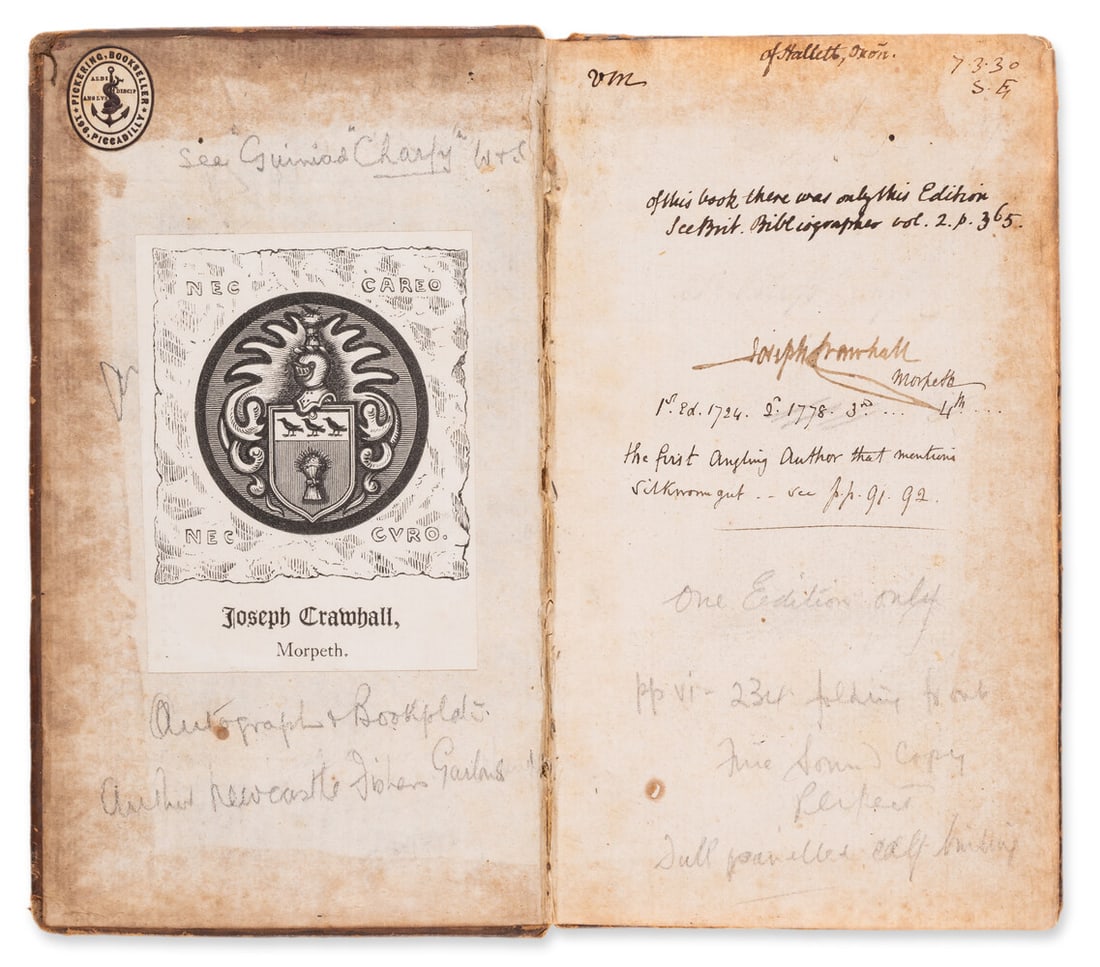 PICKERING, BOOKSELLER
196, PICCADILLY
ALDI
DISCIP
ANGLVS
See "Guiniad" "Charfy"
NEC CAREO
NEC CVRO.
Joseph Crawhall,
Morpeth.
Autograph & Bookplate
Author Newcastle Fishers Garlands
of Hallett, Oxōn.
vm
7.3.30
of this book there was only this Edition
See Brit. Bibliographer vol. 2. p. 365.
Joseph Crawhall
Morpeth
1st. Ed. 1724. 2d. 1778. 3rd .... 4th ....
the first Angling Author that mentions
Silkworm gut. -- see p.p. 91. 92.
One Edition only
pp vi - folding front
Fine Sound Copy
Perfect
Full panelled calf binding